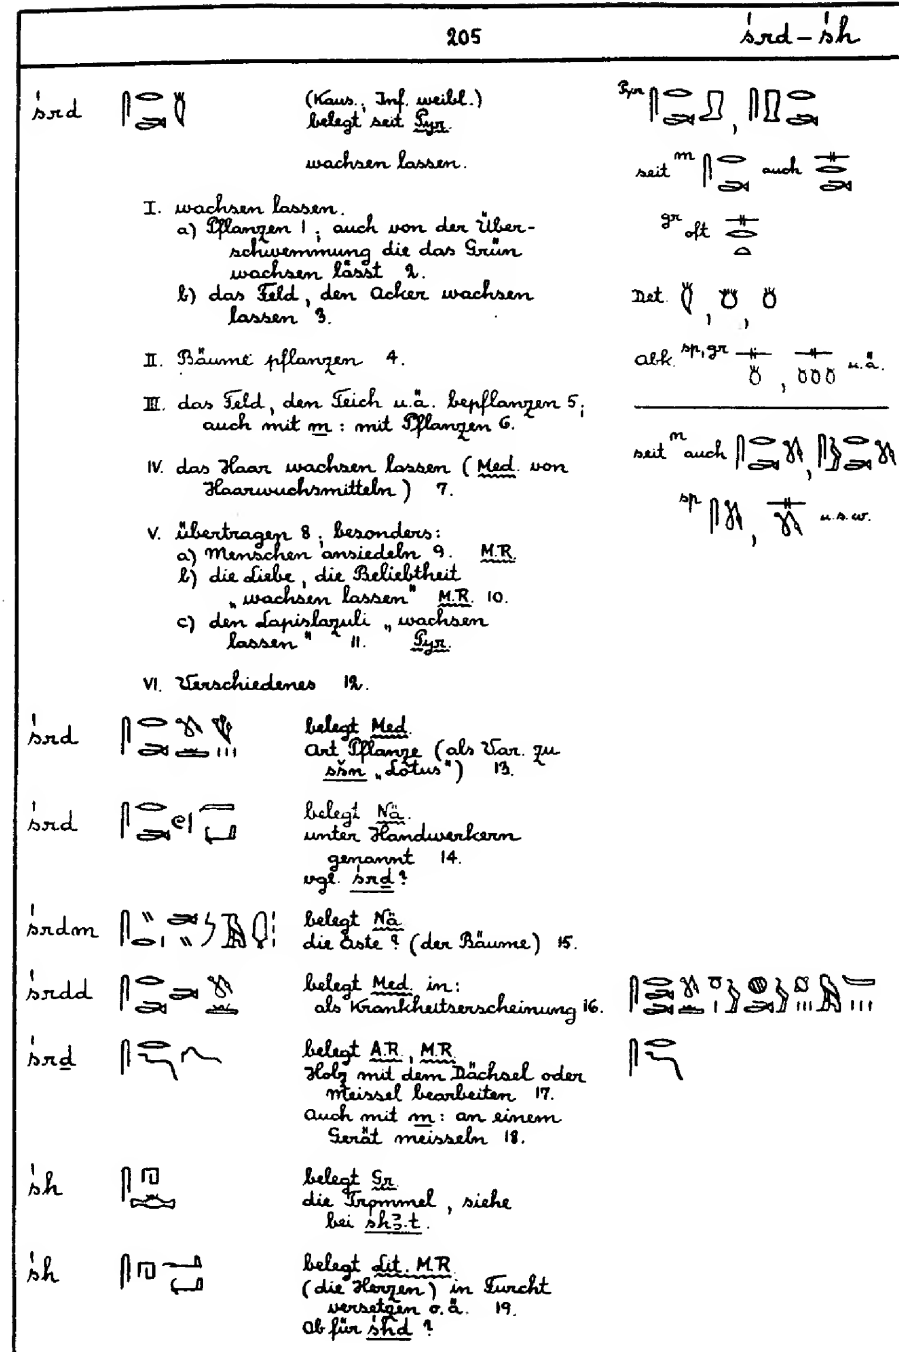 205 śrd – śh
śrd (Kaus.; Inf. weibl.)
belegt seit Pyr.
wachsen lassen.
I. wachsen lassen.
a) Pflanzen 1; auch von der Über-
schwemmung die das Grün
wachsen lässt 2.
b) das Feld, den Acker wachsen
lassen 3.
II. Bäume pflanzen 4.
III. das Feld, den Teich u.ä. bepflanzen 5;
auch mit m: mit Pflanzen 6.
IV. das Haar wachsen lassen (Med. von
Haarwuchsmitteln) 7.
V. übertragen 8; besonders:
a) Menschen ansiedeln 9. M.R.
b) die Liebe, die Beliebtheit
„wachsen lassen" M.R. 10.
c) den Lapislazuli „wachsen
lassen" 11. Pyr.
VI. Verschiedenes 12.
Pyr
seit m auch
gr oft
Det.
Abk. sp, gr u.ä.
seit m auch
sp u.s.w.
śrd belegt Med.
Art Pflanze (als Var. zu
sšn „Lotus") 13.
śrd belegt Nä.
unter Handwerkern
genannt 14.
vgl. śrḏ?
śrdm belegt Nä
die Äste? (der Bäume) 15.
śrdd belegt Med. in:
als Krankheitserscheinung 16.
śrḏ belegt A.R., M.R.
Holz mit dem Dächsel oder
Meissel bearbeiten 17.
Auch mit m: an einem
Gerät meisseln 18.
śh belegt Gr.
die Trommel, siehe
bei shꜣ.t.
śh belegt Lit. M.R
(die Herzen) in Furcht
versetzen o.ä. 19.
Ob für śhd?